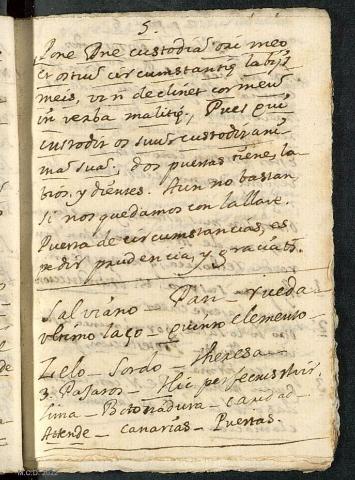 5.
Pone Dne custodiaˢ ori meo
et ostiuˢ circumstantiȩ labijs
meis, vt ñ declinet cor meuˢ
in verba malitiȩ, Pues qui
custodit os suuˢ custodit ani
maˢ suaˢ, dos puertas tiene, la
bios, y dientes. Aun no bastan
si nos quedamos con la llave.
Puerta de circumstancias, es
pedir prudencia, y gracia
Salviano _ Pan _ rueda _
vltimo lazo _ quinto elemento _
Zelo _ Sordo _ Theresa _
3. Pajaros _ Hic
Lima _ Botonadura _ caridad _
Atiende _ canarias _ Puertas.
M.C.D. 2022